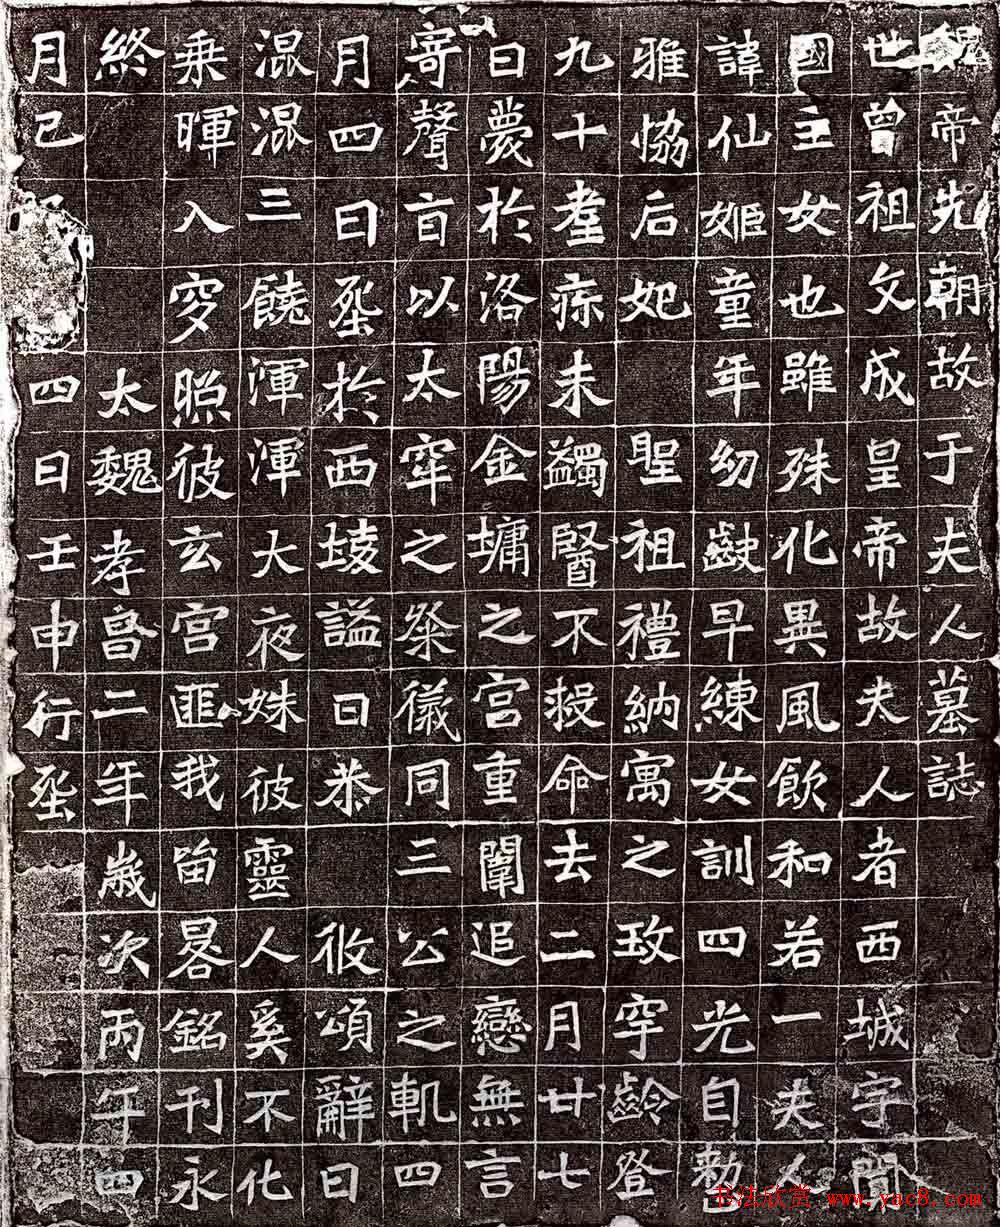 魏帝先朝故于夫人墓誌
世曾祖文成皇帝故夫人者西城宇闐
國主女也雖殊化異風飲和若一夫人
諱仙姬童年幼齔早練女訓四光自勑
雅恊后妃 聖祖禮納寓之玫罕齡登
九十耋疹未蠲醫不救命去二月廿七
日薨於洛陽金墉之宮重闈追戀無言
寄聲旨以太牢之祭儀同三公之軌四
月四日葬於西陵謚曰恭 彼頌辭曰
混混三饒渾渾大夜姝彼靈人奚不化
乘暉入穸照彼玄宮匪我留晷銘刊永
終 太魏孝昌二年歲次丙午四
月己 四日壬申行葬
书法欣赏 www.yac8.com